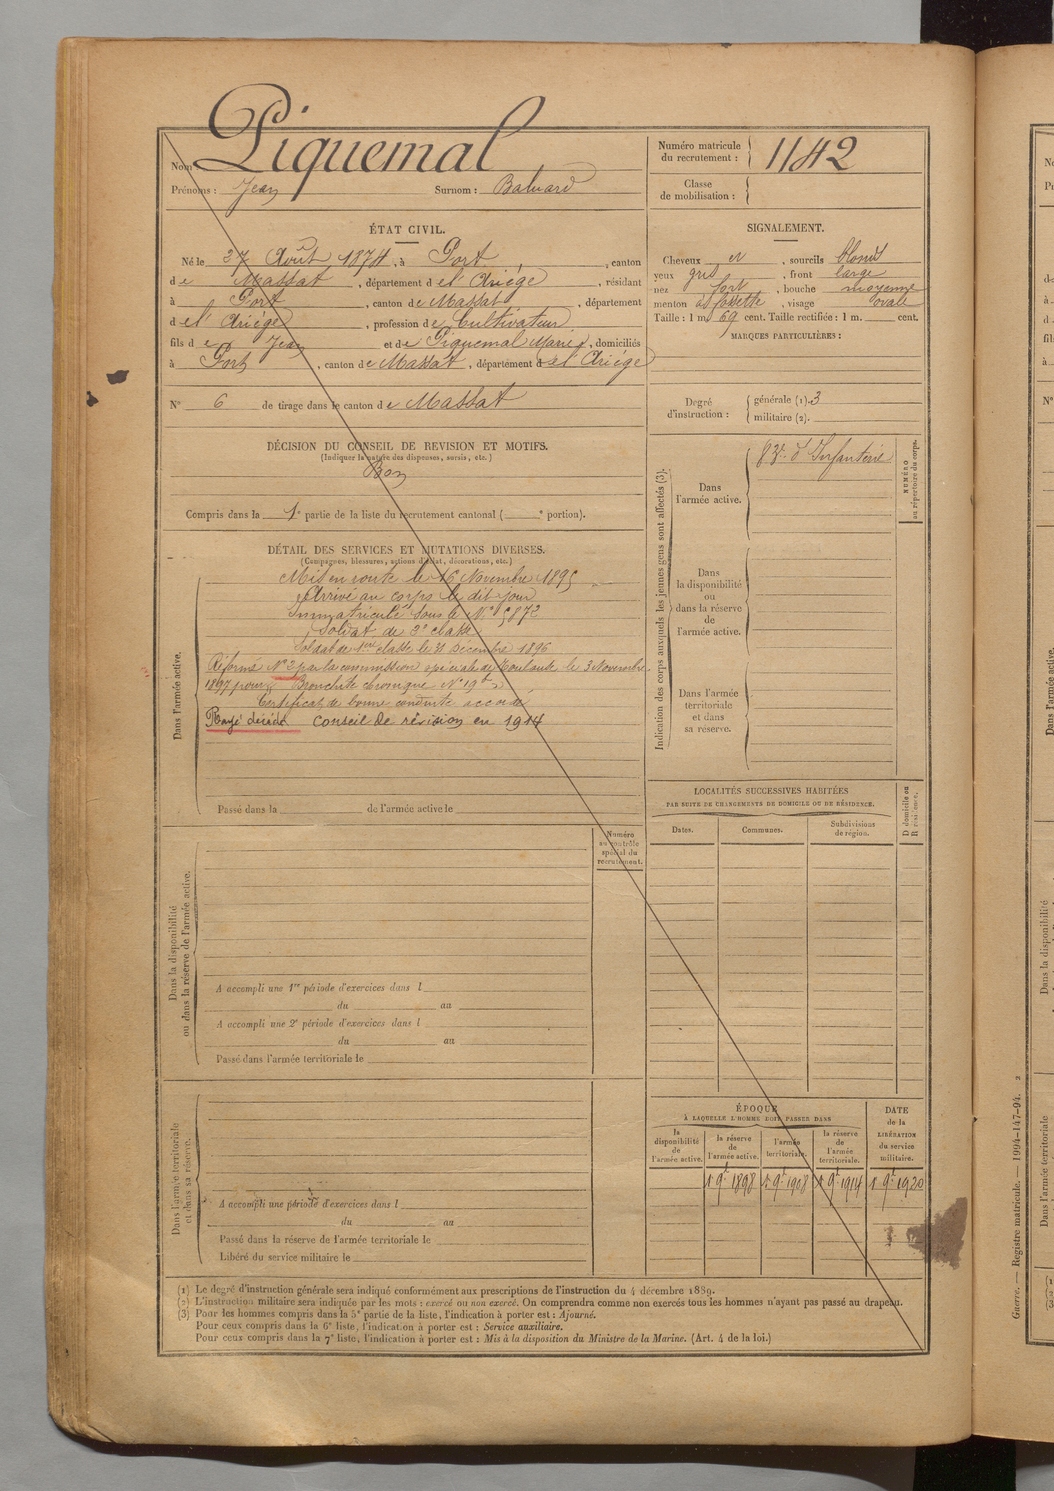 Nom : Piquemal
Prénoms : Jean Surnom :
Numéro matricule
du recrutement : 1142
Classe
de mobilisation :
ÉTAT CIVIL.
Né le 27 Août 1874, à Port, canton
de Massat, département de l'Ariége, résidant
à Port, canton de Massat, département
de l'Ariége, profession de Cultivateur
fils de Jean et de Piquemal Marie, domiciliés
à Port, canton de Massat, département de l'Ariége
N° 6 de tirage dans le canton de Massat
SIGNALEMENT.
Cheveux et, sourcils blonds
yeux gris, front large
nez fort, bouche moyenne
menton à fossette, visage ovale
Taille : 1 m. 69 cent. Taille rectifiée : 1 m. cent.
MARQUES PARTICULIÈRES :
Degré
d'instruction :
générale (1). 3
militaire (2).
DÉCISION DU CONSEIL DE REVISION ET MOTIFS.
(Indiquer la nature des dispenses, sursis, etc.)
Bon
Compris dans la 1e partie de la liste du recrutement cantonal ( e portion).
DÉTAIL DES SERVICES ET MUTATIONS DIVERSES.
(Campagnes, blessures, actions d'éclat, décorations, etc.)
Dans l'armée active.
Mis en route le 16 Novembre 1895
Arrivé au corps le dit jour
Immatriculé sous le N° 5872
Soldat de 2e classe
Soldat de 1ere classe le 31 Décembre 1896
Réformé N° 2 par la commission spéciale de Toulouse le 3 Novembre
1897 pour Bronchite chronique N° 19
Certificat de bonne conduite accordé
Rayé Conseil de révision en 1914
Passé dans la de l'armée active le
Indication des corps auxquels les jeunes gens sont affectés (3).
Dans
l'armée active.
83e d'Infanterie
NUMÉRO
au répertoire du corps.
Dans
la disponibilité
ou
dans la réserve
de
l'armée active.
Dans l'armée
territoriale
et dans
sa réserve.
LOCALITÉS SUCCESSIVES HABITÉES
PAR SUITE DE CHANGEMENTS DE DOMICILE OU DE RÉSIDENCE.
D domicile ou
R résidence.
Dates.
Communes.
Subdivisions
de région.
Numéro
au contrôle
spécial du
recrutement.
Dans la disponibilité
ou dans la réserve de l'armée active.
A accompli une 1re période d'exercices dans l
du au
A accompli une 2e période d'exercices dans l
du au
Passé dans l'armée territoriale le
Dans l'armée territoriale
et dans sa réserve.
A accompli une période d'exercices dans l
du au
Passé dans la réserve de l'armée territoriale le
Libéré du service militaire le
ÉPOQUE
À LAQUELLE L'HOMME DOIT PASSER DANS
la
disponibilité
de
l'armée active.
la réserve
de
l'armée active.
l'armée
territoriale.
la réserve
de
l'armée
territoriale.
DATE
de la
LIBÉRATION
du service
militaire.
1 9bre 1898 1 9bre 1908 1 9bre 1914 1 9bre 1920
(1) Le degré d'instruction générale sera indiqué conformément aux prescriptions de l'instruction du 4 décembre 1889.
(2) L'instruction militaire sera indiquée par les mots : exercé ou non exercé. On comprendra comme non exercés tous les hommes n'ayant pas passé au drapeau.
(3) Pour les hommes compris dans la 5e partie de la liste, l'indication à porter est : Ajourné.
Pour ceux compris dans la 6e liste, l'indication à porter est : Service auxiliaire.
Pour ceux compris dans la 7e liste, l'indication à porter est : Mis à la disposition du Ministre de la Marine. (Art. 4 de la loi.)
Guerre. — Registre matricule. — 1994-147-94.
Dans l'armée active.
Dans la disponibilité
Dans l'armée territoriale